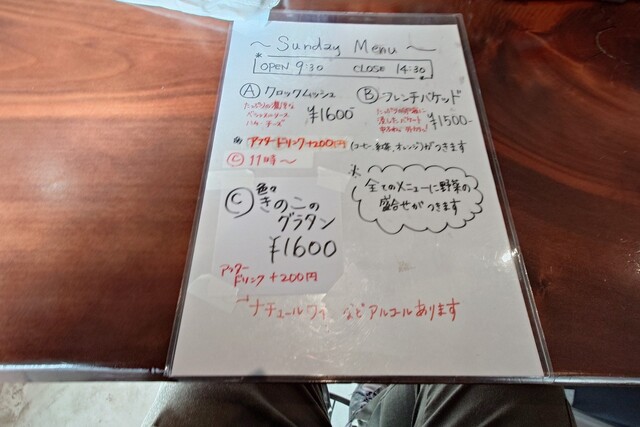 ~ Sunday Menu ~
OPEN 9:30 CLOSE 14:30
Ⓐ クロックムッシュ
¥1600-
Ⓑ フレンチバケッド
¥1500-
アフタードリンク+200円
(コーヒー、紅茶、オレンジ)がつきます
Ⓒ 11時〜
※ 全てのメニューに野菜の
盛合せがつきます
Ⓒ 色々
きのこの
グラタン
¥1600
アフター
ドリンク+200円
ナチュールワイ などアルコールあります